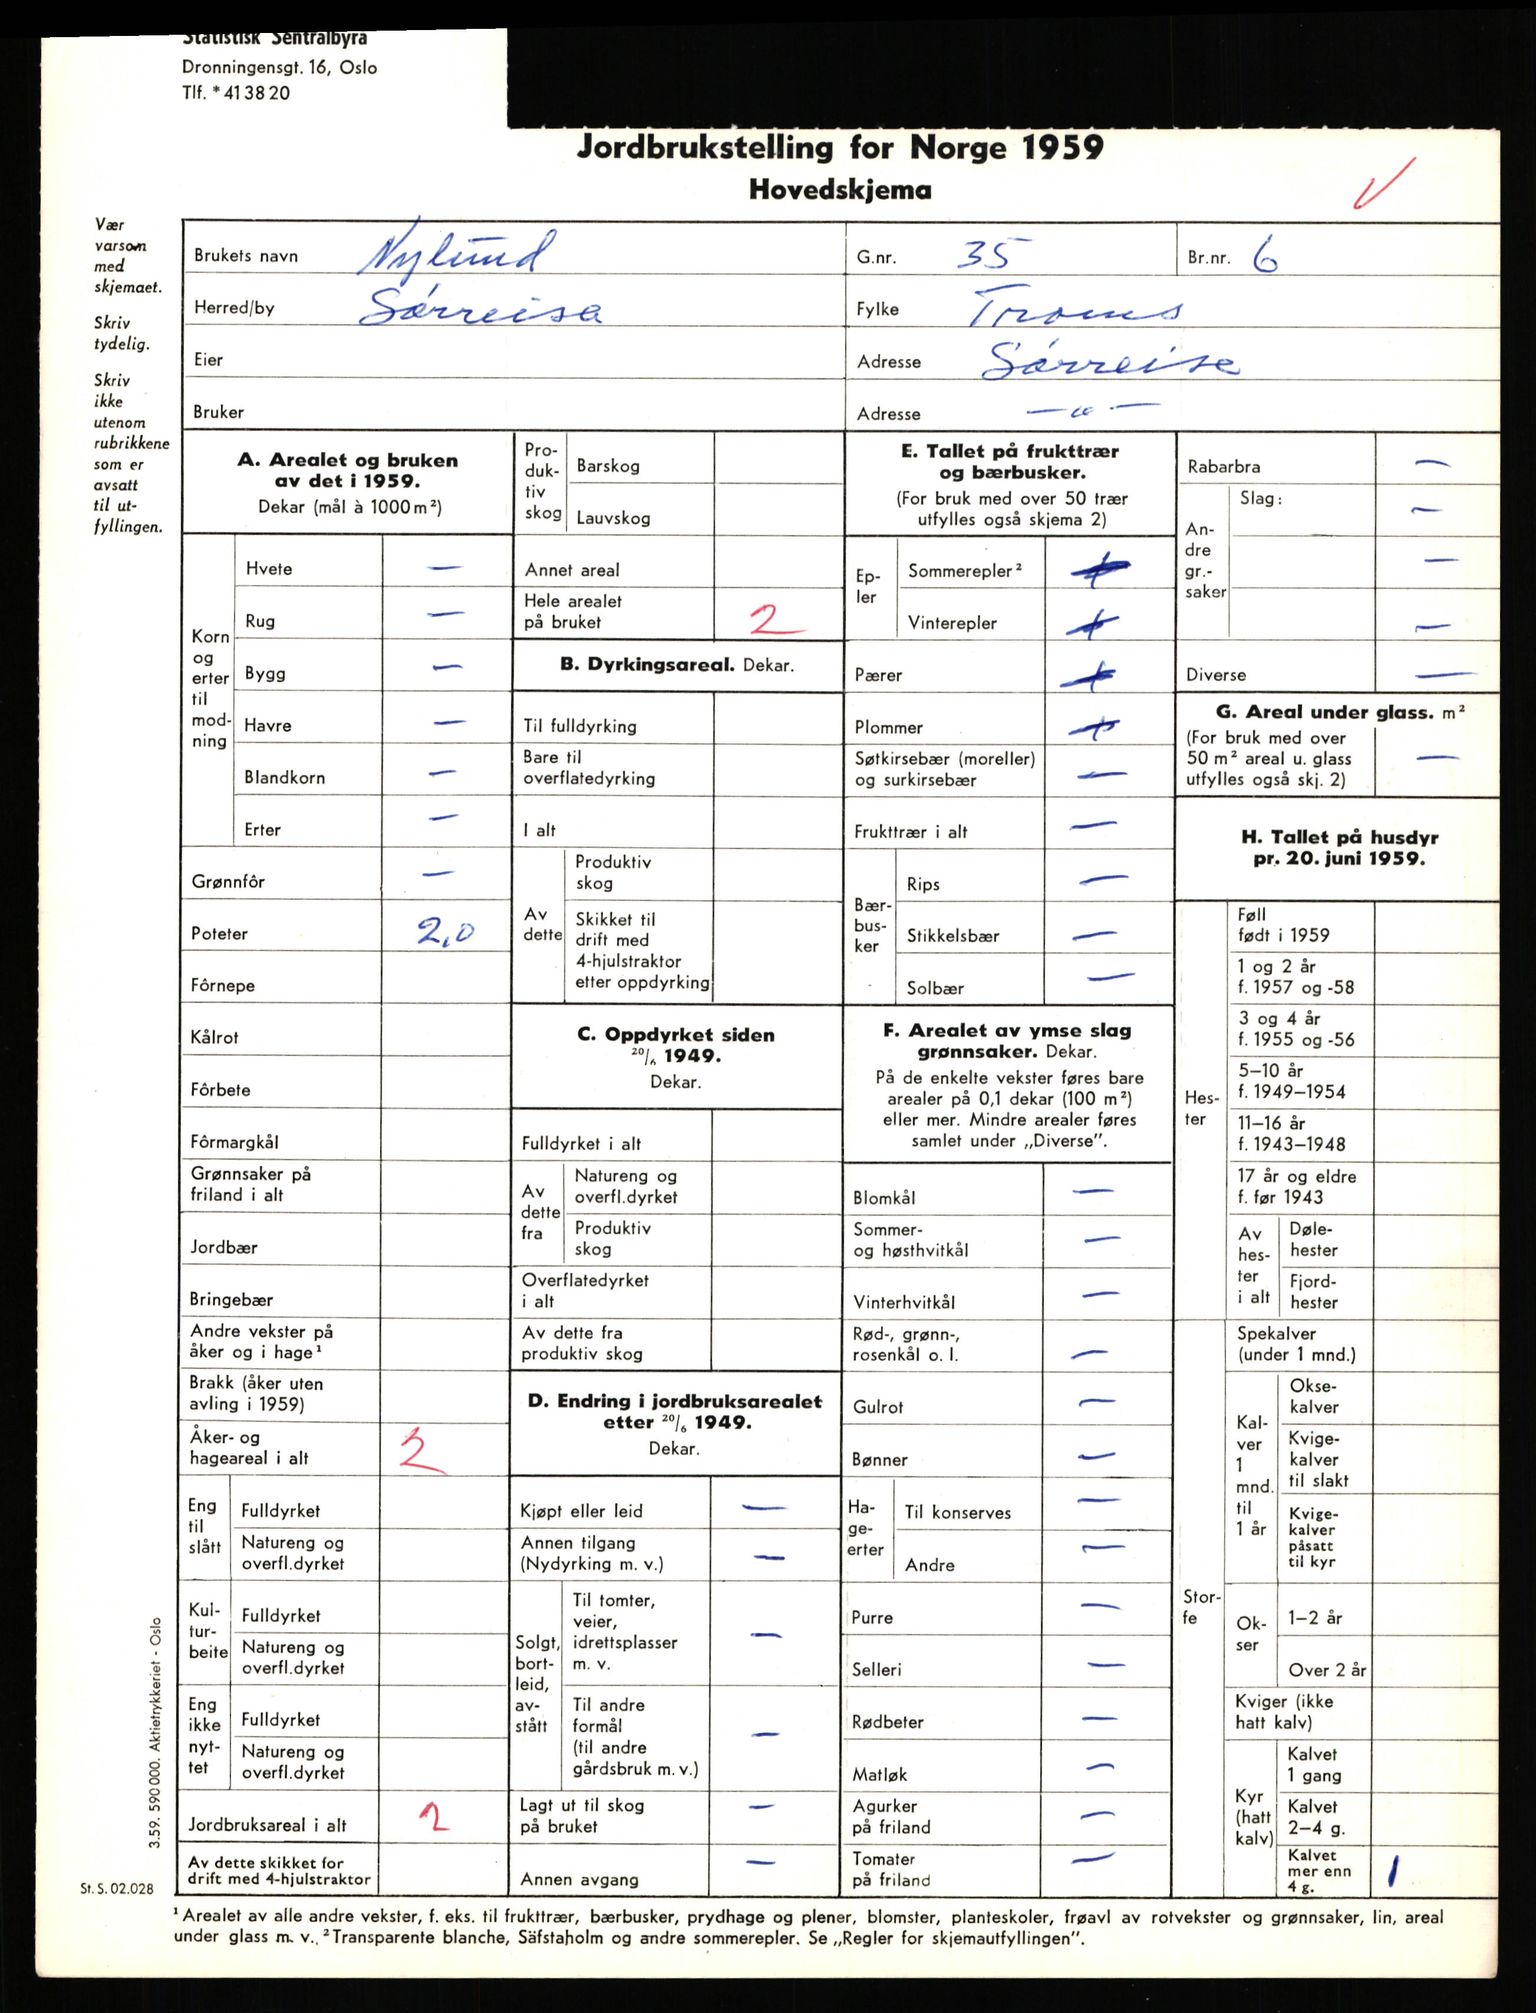 Statistisk Sentralbyrå
Dronningensgt. 16, Oslo
Tlf. * 41 38 20
Jordbrukstelling for Norge 1959
Hovedskjema
Vær
varsom
med
skjemaet.
Skriv
tydelig.
Skriv
ikke
utenom
rubrikkene
som er
avsatt
til ut-
fyllingen.
Brukets navn Nylund G.nr. 35 Br.nr. 6
Herred/by Sørreisa Fylke Troms
Eier Adresse Sørreisa
Bruker Adresse — " —
A. Arealet og bruken
av det i 1959.
Dekar (mål à 1000 m²)
Korn
og
erter
til
mod-
ning
Hvete —
Rug —
Bygg —
Havre —
Blandkorn —
Erter —
Grønnfôr —
Poteter 2,0
Fôrnepe
Kålrot
Fôrbete
Fôrmargkål
Grønnsaker på
friland i alt
Jordbær
Bringebær
Andre vekster på
åker og i hage¹
Brakk (åker uten
avling i 1959)
Åker- og
hageareal i alt 2
Eng
til
slått
Fulldyrket
Natureng og
overfl.dyrket
Kul-
tur-
beite
Fulldyrket
Natureng og
overfl.dyrket
Eng
ikke
nyt-
tet
Fulldyrket
Natureng og
overfl.dyrket
Jordbruksareal i alt 2
Av dette skikket for
drift med 4-hjulstraktor
Pro-
duk-
tiv
skog
Barskog
Lauvskog
Annet areal
Hele arealet
på bruket 2
B. Dyrkingsareal. Dekar.
Til fulldyrking
Bare til
overflatedyrking
I alt
Av
dette
Produktiv
skog
Skikket til
drift med
4-hjulstraktor
etter oppdyrking
C. Oppdyrket siden
20/6 1949.
Dekar.
Fulldyrket i alt
Av
dette
fra
Natureng og
overfl.dyrket
Produktiv
skog
Overflatedyrket
i alt
Av dette fra
produktiv skog
D. Endring i jordbruksarealet
etter 20/6 1949.
Dekar.
Kjøpt eller leid —
Annen tilgang
(Nydyrking m. v.) —
Solgt,
bort-
leid,
av-
stått
Til tomter,
veier,
idrettsplasser
m. v. —
Til andre
formål
(til andre
gårdsbruk m. v.) —
Lagt ut til skog
på bruket —
Annen avgang —
E. Tallet på frukttrær
og bærbusker.
(For bruk med over 50 trær
utfylles også skjema 2)
Ep-
ler
Sommerepler² —
Vinterepler —
Pærer —
Plommer —
Søtkirsebær (moreller)
og surkirsebær —
Frukttrær i alt —
Bær-
bus-
ker
Rips —
Stikkelsbær —
Solbær —
F. Arealet av ymse slag
grønnsaker. Dekar.
På de enkelte vekster føres bare
arealer på 0,1 dekar (100 m²)
eller mer. Mindre arealer føres
samlet under „Diverse”.
Blomkål —
Sommer-
og høsthvitkål —
Vinterhvitkål —
Rød-, grønn-,
rosenkål o. l. —
Gulrot —
Bønner —
Ha-
ge-
erter
Til konserves —
Andre —
Purre —
Selleri —
Rødbeter —
Matløk —
Agurker
på friland —
Tomater
på friland —
Rabarbra —
An-
dre
gr.-
saker
Slag: —
—
—
Diverse —
G. Areal under glass. m²
(For bruk med over
50 m² areal u. glass
utfylles også skj. 2) —
H. Tallet på husdyr
pr. 20. juni 1959.
Hes-
ter
Føll
født i 1959
1 og 2 år
f. 1957 og -58
3 og 4 år
f. 1955 og -56
5–10 år
f. 1949–1954
11–16 år
f. 1943–1948
17 år og eldre
f. før 1943
Av
hes-
ter
i alt
Døle-
hester
Fjord-
hester
Stor-
fe
Spekalver
(under 1 mnd.)
Kal-
ver
1
mnd.
til
1 år
Okse-
kalver
Kvige-
kalver
til slakt
Kvige-
kalver
påsatt
til kyr
Ok-
ser
1–2 år
Over 2 år
Kviger (ikke
hatt kalv)
Kyr
(hatt
kalv)
Kalvet
1 gang
Kalvet
2–4 g.
Kalvet
mer enn
4 g. 1
3.59. 590 000. Aktietrykkeriet - Oslo
St. S. 02.028
¹ Arealet av alle andre vekster, f. eks. til frukttrær, bærbusker, prydhage og plener, blomster, planteskoler, frøavl av rotvekster og grønnsaker, lin, areal
under glass m. v. ² Transparente blanche, Säfstaholm og andre sommerepler. Se „Regler for skjemautfyllingen”.